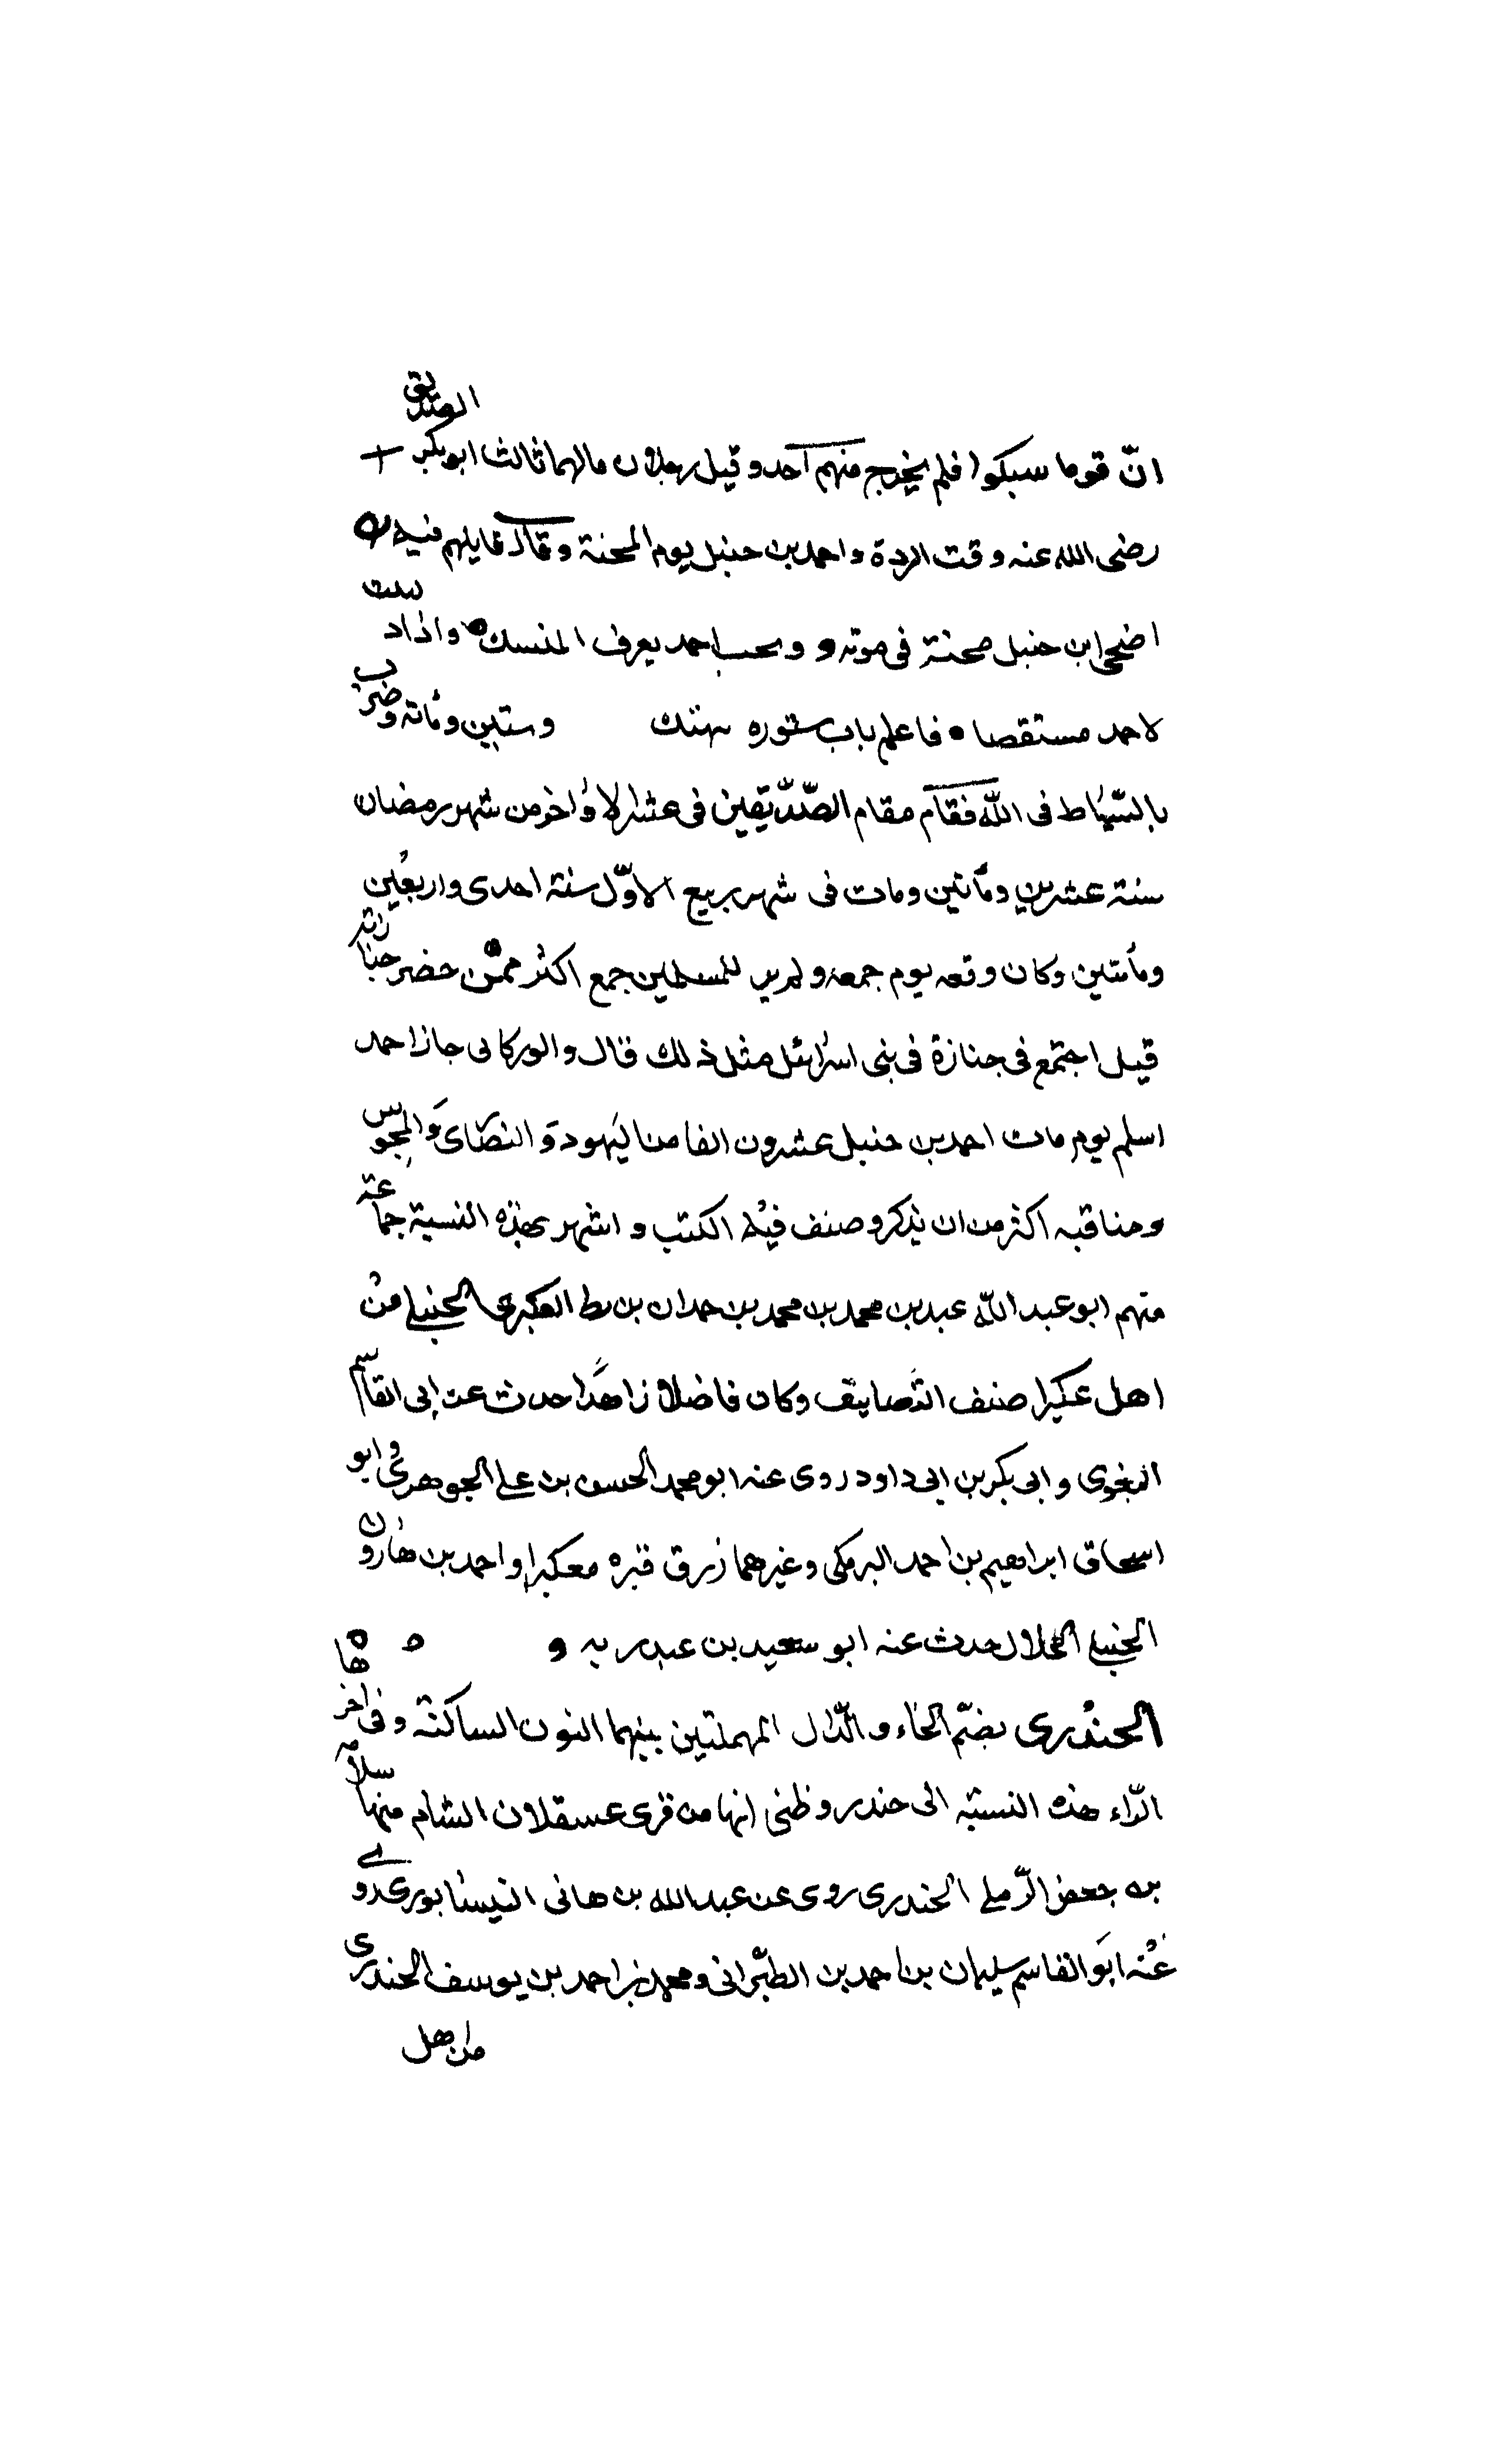 انّ قوما سبكوا فلم يخرج منهم احد و قيل رجلان مالهما ثالث ابوبكر الصديق
رضى الله عنه وقت الردة واحمد بن حنبل يوم المحنة وقال قايلهم فيه
اضحى ابن حنبل محنة فى موته وبحب احمد يعرف المنسك واذا رايت
لاحمد مستقصا فاعلم بان ستوره ستهتك وستين ومائة وضرب
بالسّياط فى اللّه فقام مقام الصّدّيقين فى عشر الاواخر من شهر رمضان
سنة عشرين ومأتين ومات فى شهر ربيع الاوّل سنة احدى واربعين
ومأتين وكان وقعه يوم جمعه ولم ير للمسلمين جمع اكثر ممّن حضر جنازته
قيل اجتمع فى جنازة فى بنى اسرائيل مثل ذلك قال والوركانى جار احمد
اسلم يوم مات احمد بن حنبل عشرون الفا من اليهود و النصارى والمجوس
ومناقبه اكثر من ان يذكر وصنف فيه الكتب و اشهر بهذه النسبة جماعة
منهم ابو عبد اللّه عبد بن محمد بن محمد بن حمدان بن بط العكبرى الحنبلي من
اهل عكبرا صنف التصانيف وكان فاضلا زاهدا حدث عن ابى القاسم
البغوى و ابى بكر بن ابى داود روى عنه ابو محمد الحسن بن على الجوهرى وابو
اسحاق ابراهيم بن احمد البرمكى وغيرهما زرق قبره بعكبرا واحمد بن هارون
الحنبلي الخلال حدث عنه ابو سعيد بن عبدربه
الحندرى بضمّ الحاء و الدّال المهملتين بينهما النون الساكنة وفى اخرها
الرّاء هذه النسبة الى حندر وظنى انها من قرى عسقلان الشام منها سلامة
بن جعفر الرّملي الحندرى روى عن عبد الله بن هانى النيسابورى روى
عنه ابو القاسم سليمان بن احمد بن الطبرانى ومحمد بن احمد بن يوسف الحندرى
من اهل